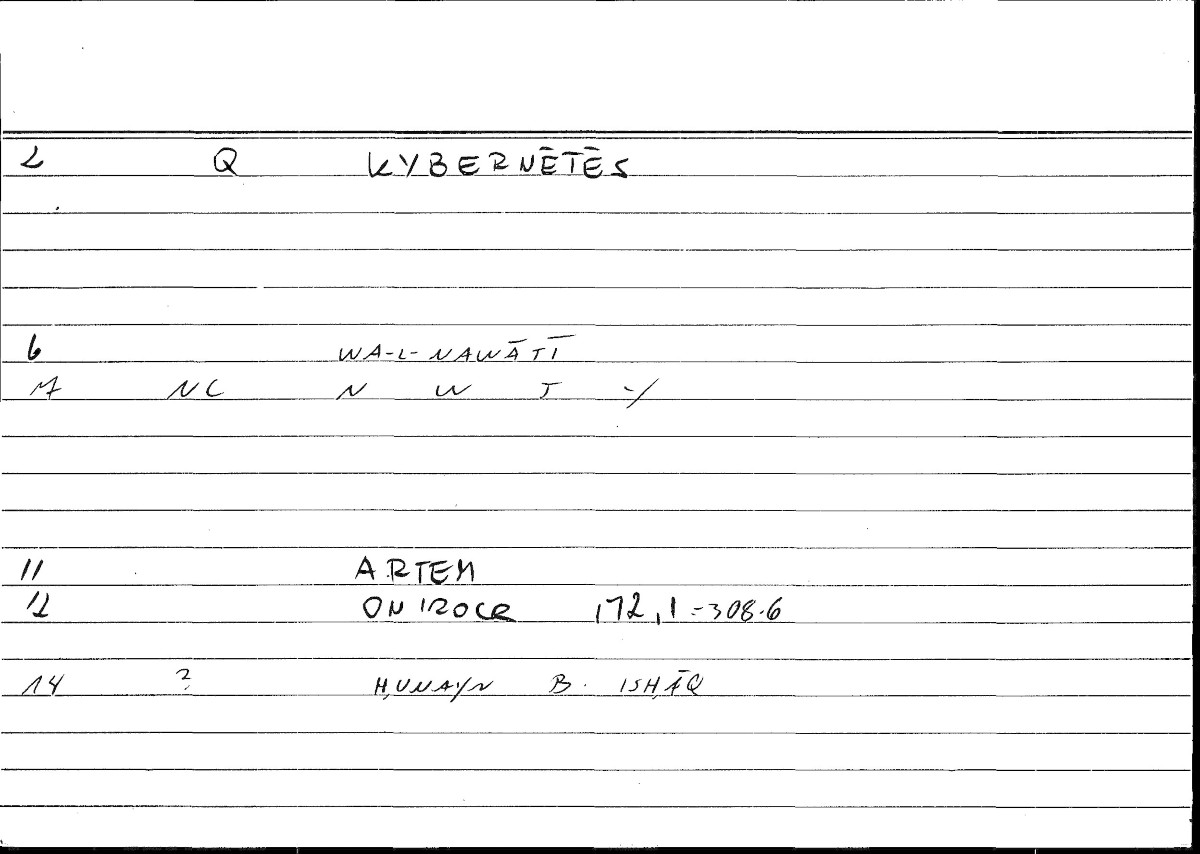 2 Q KYBERNĒTĒS
6 WA-L-NAWĀTĪ
7 NC N W T Y
11 ARTEM
12 ONIROCR 172,1=308.6
14 ? ḤUNAYN B. ISḤĀQ